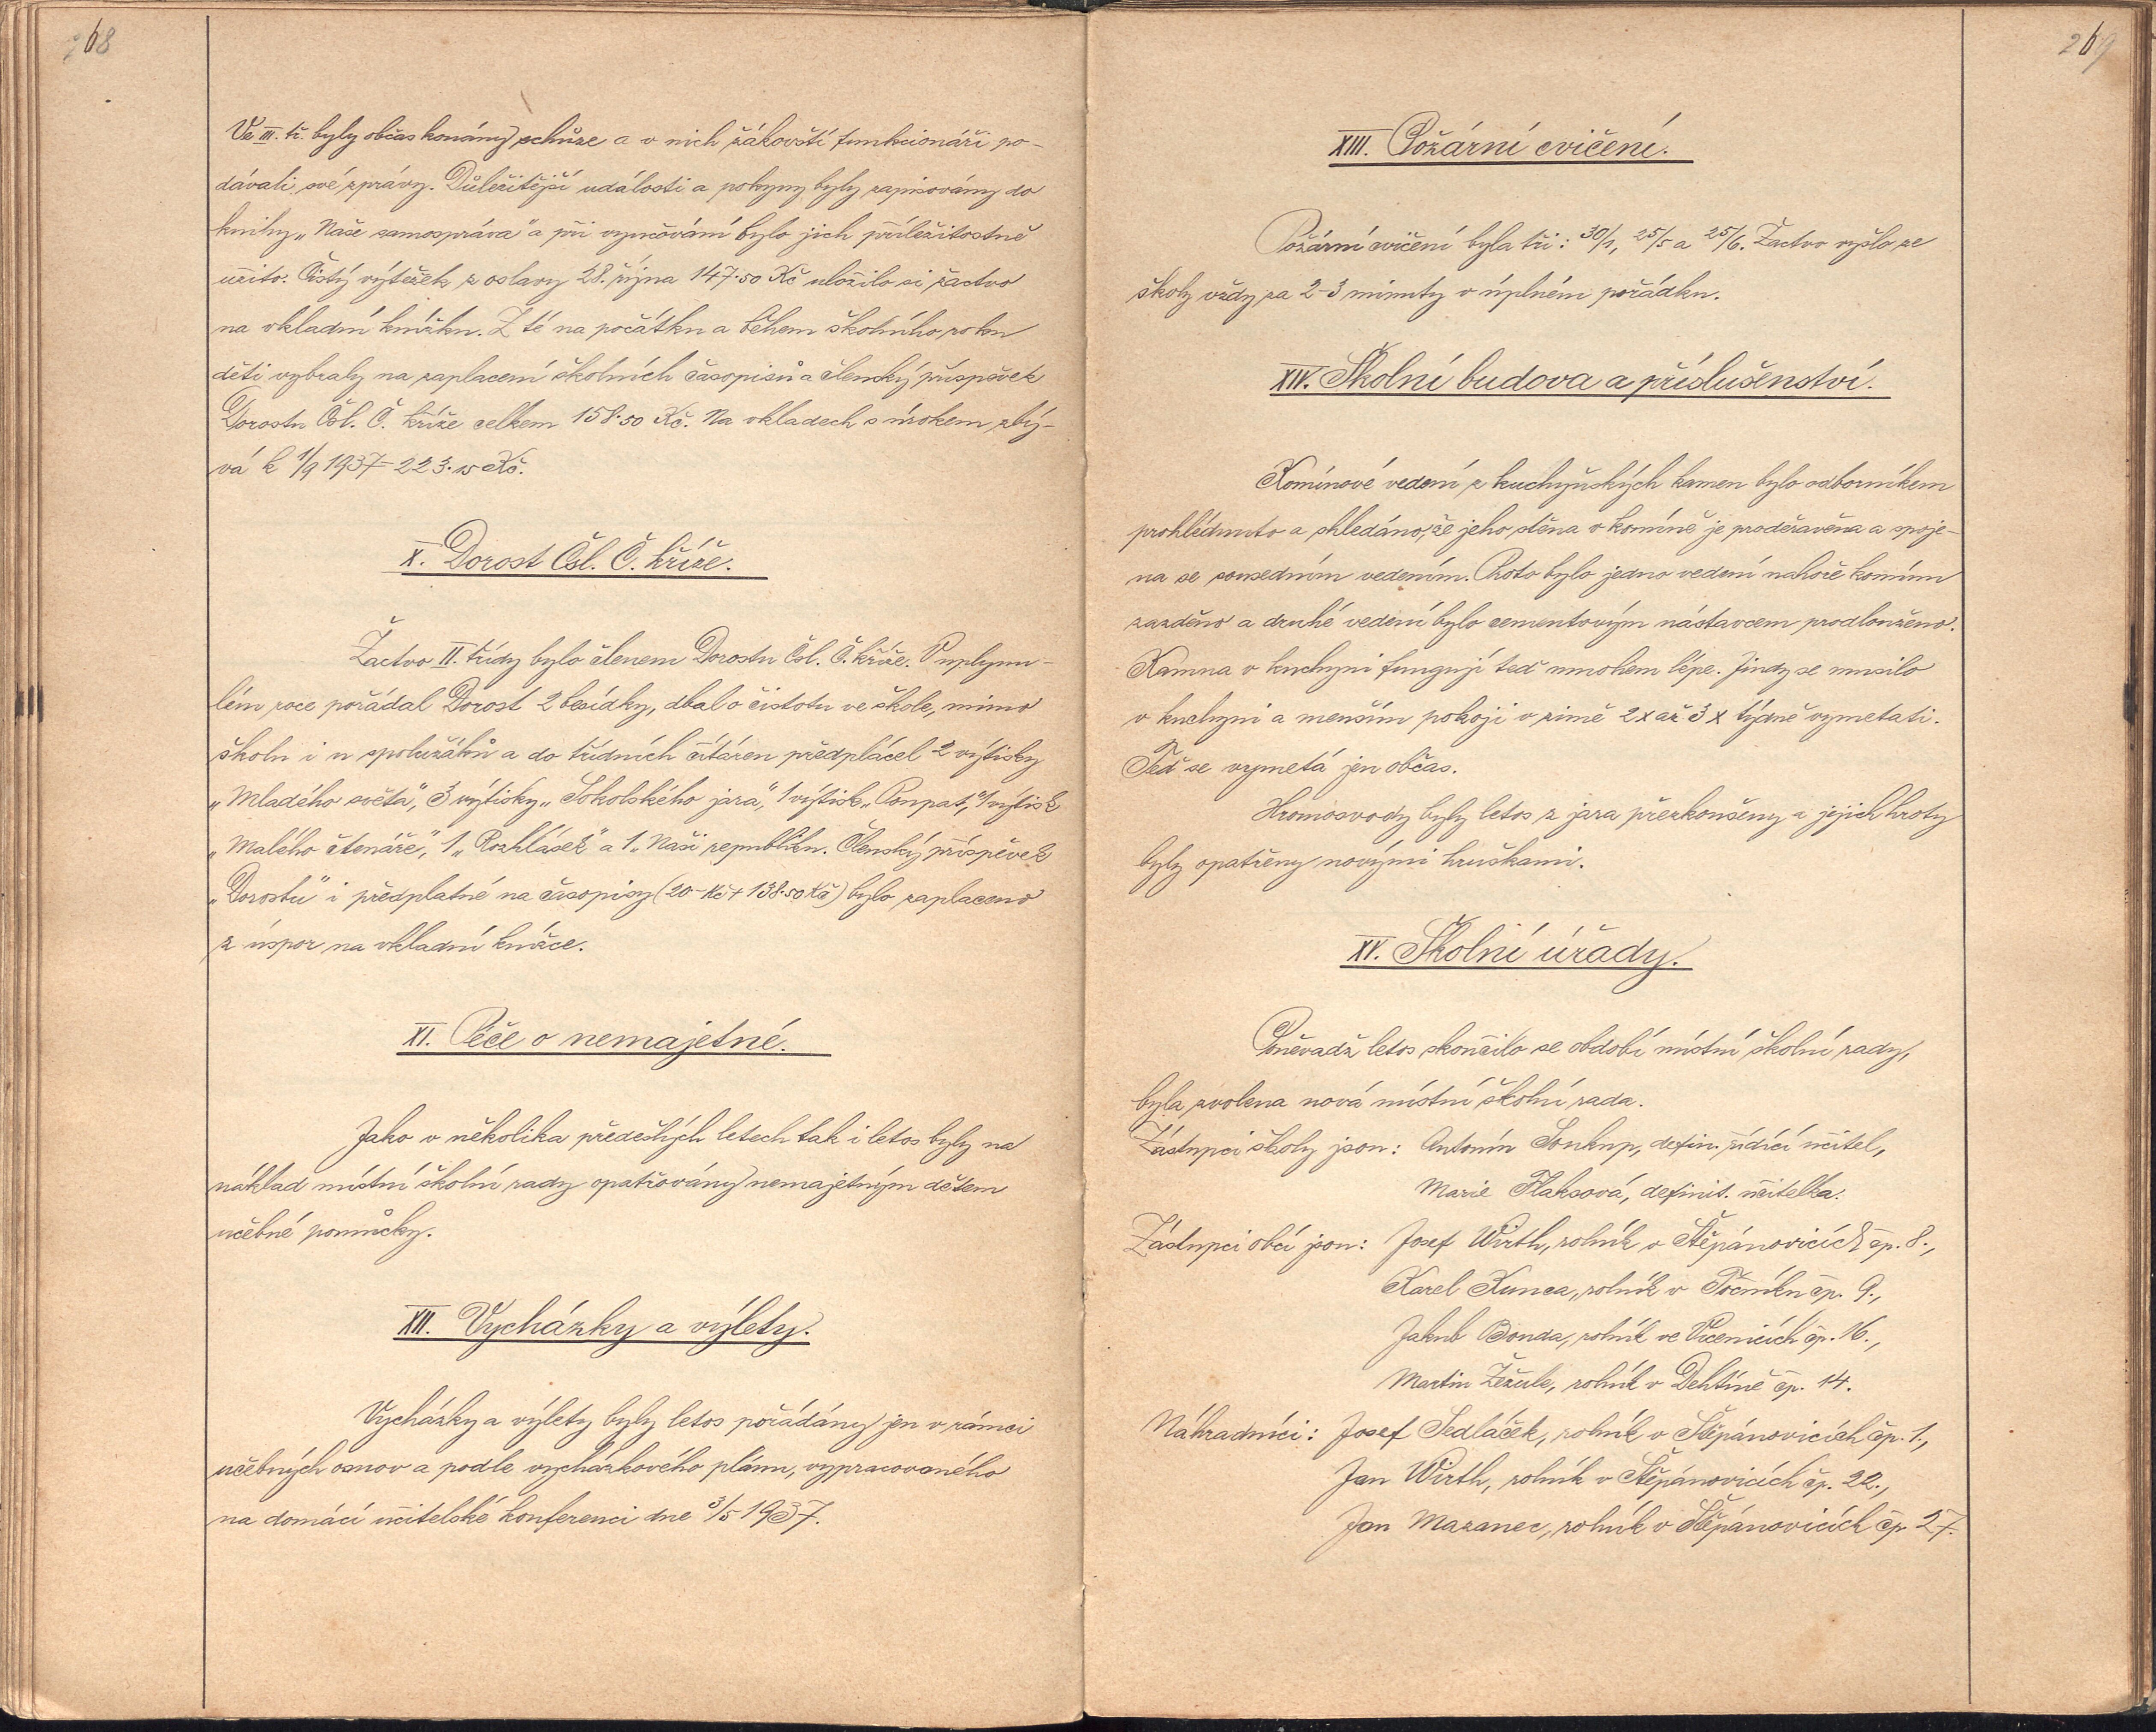 268
Ve III. tř. byly občas konány schůze a v nich žákovští funkcionáři po-
dávali své zprávy. Důležitější události a pokyny byly zapisovány do
knihy „Naše samospráva" a při vyučování bylo jich příležitostně
užito. Čistý výtěžek z oslavy 28. října 147·50 Kč uložilo si žactvo
na vkladní knížku. Z té na počátku a během školního roku
děti vybraly na zaplacení školních časopisů a členský příspěvek
Dorostu Čsl. Č. kříže celkem 158·50 Kč. Na vkladech s úrokem zbý-
vá k 1/9 1937 = 223·15 Kč.
X. Dorost Čsl. Č. kříže.
Žactvo II. třídy bylo členem Dorostu Čsl. Č. kříže. V uplynu-
lém roce pořádal Dorost 2 besídky, dbal o čistotu ve škole, mimo
školu i u spolužáků a do třídních čítáren předplácel 2 výtisky
„Mladého světa", 3 výtisky „Sokolského jara", 1 výtisk „Poupat", 1 výtisk
„Malého čtenáře", 1 „Rozhlásek" a 1 „Naši republiku. Členský příspěvek
„Dorostu" i předplatné na časopisy (20– Kč + 138·50 Kč) bylo zaplaceno
z úspor na vkladní knížce.
XI. Péče o nemajetné.
Jako v několika předešlých letech tak i letos byly na
náklad místní školní rady opatřovány nemajetným dětem
učebné pomůcky.
XII. Vycházky a výlety.
Vycházky a výlety byly letos pořádány jen v rámci
učebných osnov a podle vycházkového plánu, vypracovaného
na domácí učitelské konferenci dne 3/5 1937.
269
XIII. Požární cvičení.
Požární cvičení byla tři: 30/1, 25/5 a 25/6. Žactvo vyšlo ze
školy vždy za 2–3 minuty v úplném pořádku.
XIV. Školní budova a příslušenství.
Komínové vedení z kuchyňských kamen bylo odborníkem
prohlédnuto a shledáno, že jeho stěna v komíně je proděravěna a spoje-
na se sousedním vedením. Proto bylo jedno vedení nahoře komínu
zazděno a druhé vedení bylo cementovým nástavcem prodlouženo.
Kamna v kuchyni fungují teď mnohem lépe. Jindy se musilo
v kuchyni a menším pokoji v zimě 2x až 3x týdně vymetati.
Teď se vymetá jen občas.
Hromosvody byly letos z jara přezkoušeny a jejich hroty
byly opatřeny novými hruškami.
XV. Školní úřady.
Poněvadž letos skončilo se období místní školní rady,
byla zvolena nová místní školní rada.
Zástupci školy jsou: Antonín Soukup, defin. řídící učitel,
Marie Flaksová, definit. učitelka.
Zástupci obcí jsou: Josef Wirth, rolník v Štěpánovicích čp. 8.,
Karel Kunca, rolník v Točníku čp. 9.,
Jakub Bouda, rolník ve Vícenicích čp. 16.,
Martin Žežule, rolník v Dehtíně čp. 14.
Náhradníci: Josef Sedláček, rolník v Štěpánovicích čp. 1.,
Jan Wirth, rolník v Štěpánovicích čp. 22.,
Jan Mazanec, rolník v Štěpánovicích čp. 27.